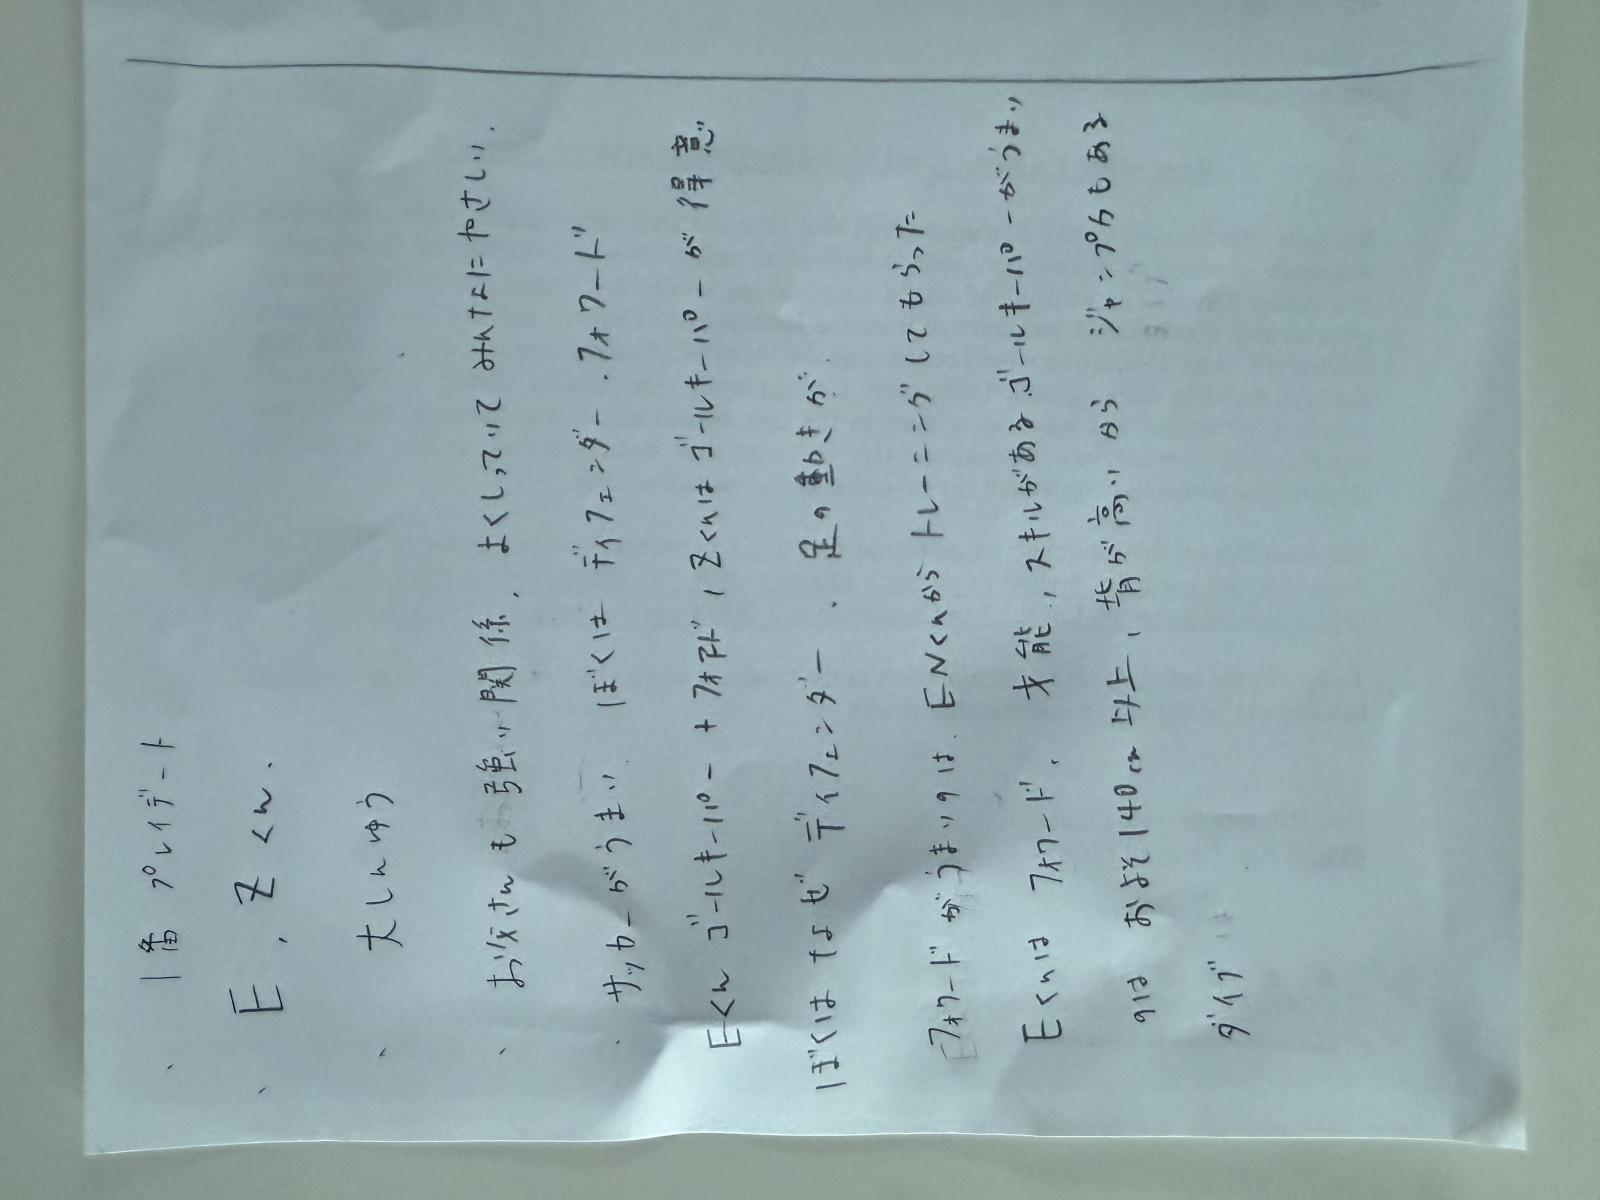 、1番 プレイデート
、E、Zくん.
、大しんゆう
、お父さんも強い関係、よくしっていてみんなにやさしい.
、サッカーがうまい. ぼくは ディフェンダー . フォワード
Eくん ゴールキーパー + フォワド, Zくんはゴールキーパーが得意
ぼくはなぜ ディフェンダー . 足の動きが.
フォワードがうまいのは. ENくんから トレーニングしてもらった
Eくんは フォワード. 才能, スキルがある ゴールキーパーがうまい
のは およそ140cm 以上, 背が高いから ジャンプ力もある
ダイブ